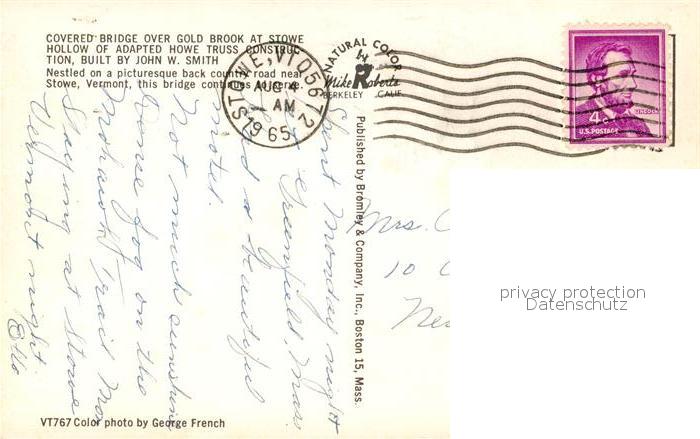 COVERED BRIDGE OVER GOLD BROOK AT STOWE
HOLLOW OF ADAPTED HOWE TRUSS CONSTRUC-
TION, BUILT BY JOHN W. SMITH
Nestled on a picturesque back country road near
Stowe, Vermont, this bridge continues to serve.
STOWE, VT 05672
AUG 4
AM
1965
NATURAL COLOR
by
Mike Roberts
BERKELEY CALIF.
LINCOLN
4¢
U.S. POSTAGE
Published by Bromley & Company, Inc., Boston 15, Mass.
Spent Monday night
Greenfield, Mass.
had a beautiful
motel.
Not much sunshine
Dense fog on the
Mohawk Trail
Staying at Stowe
Vermont night
Mrs.
10
privacy protection
Datenschutz
VT767 Color photo by George French